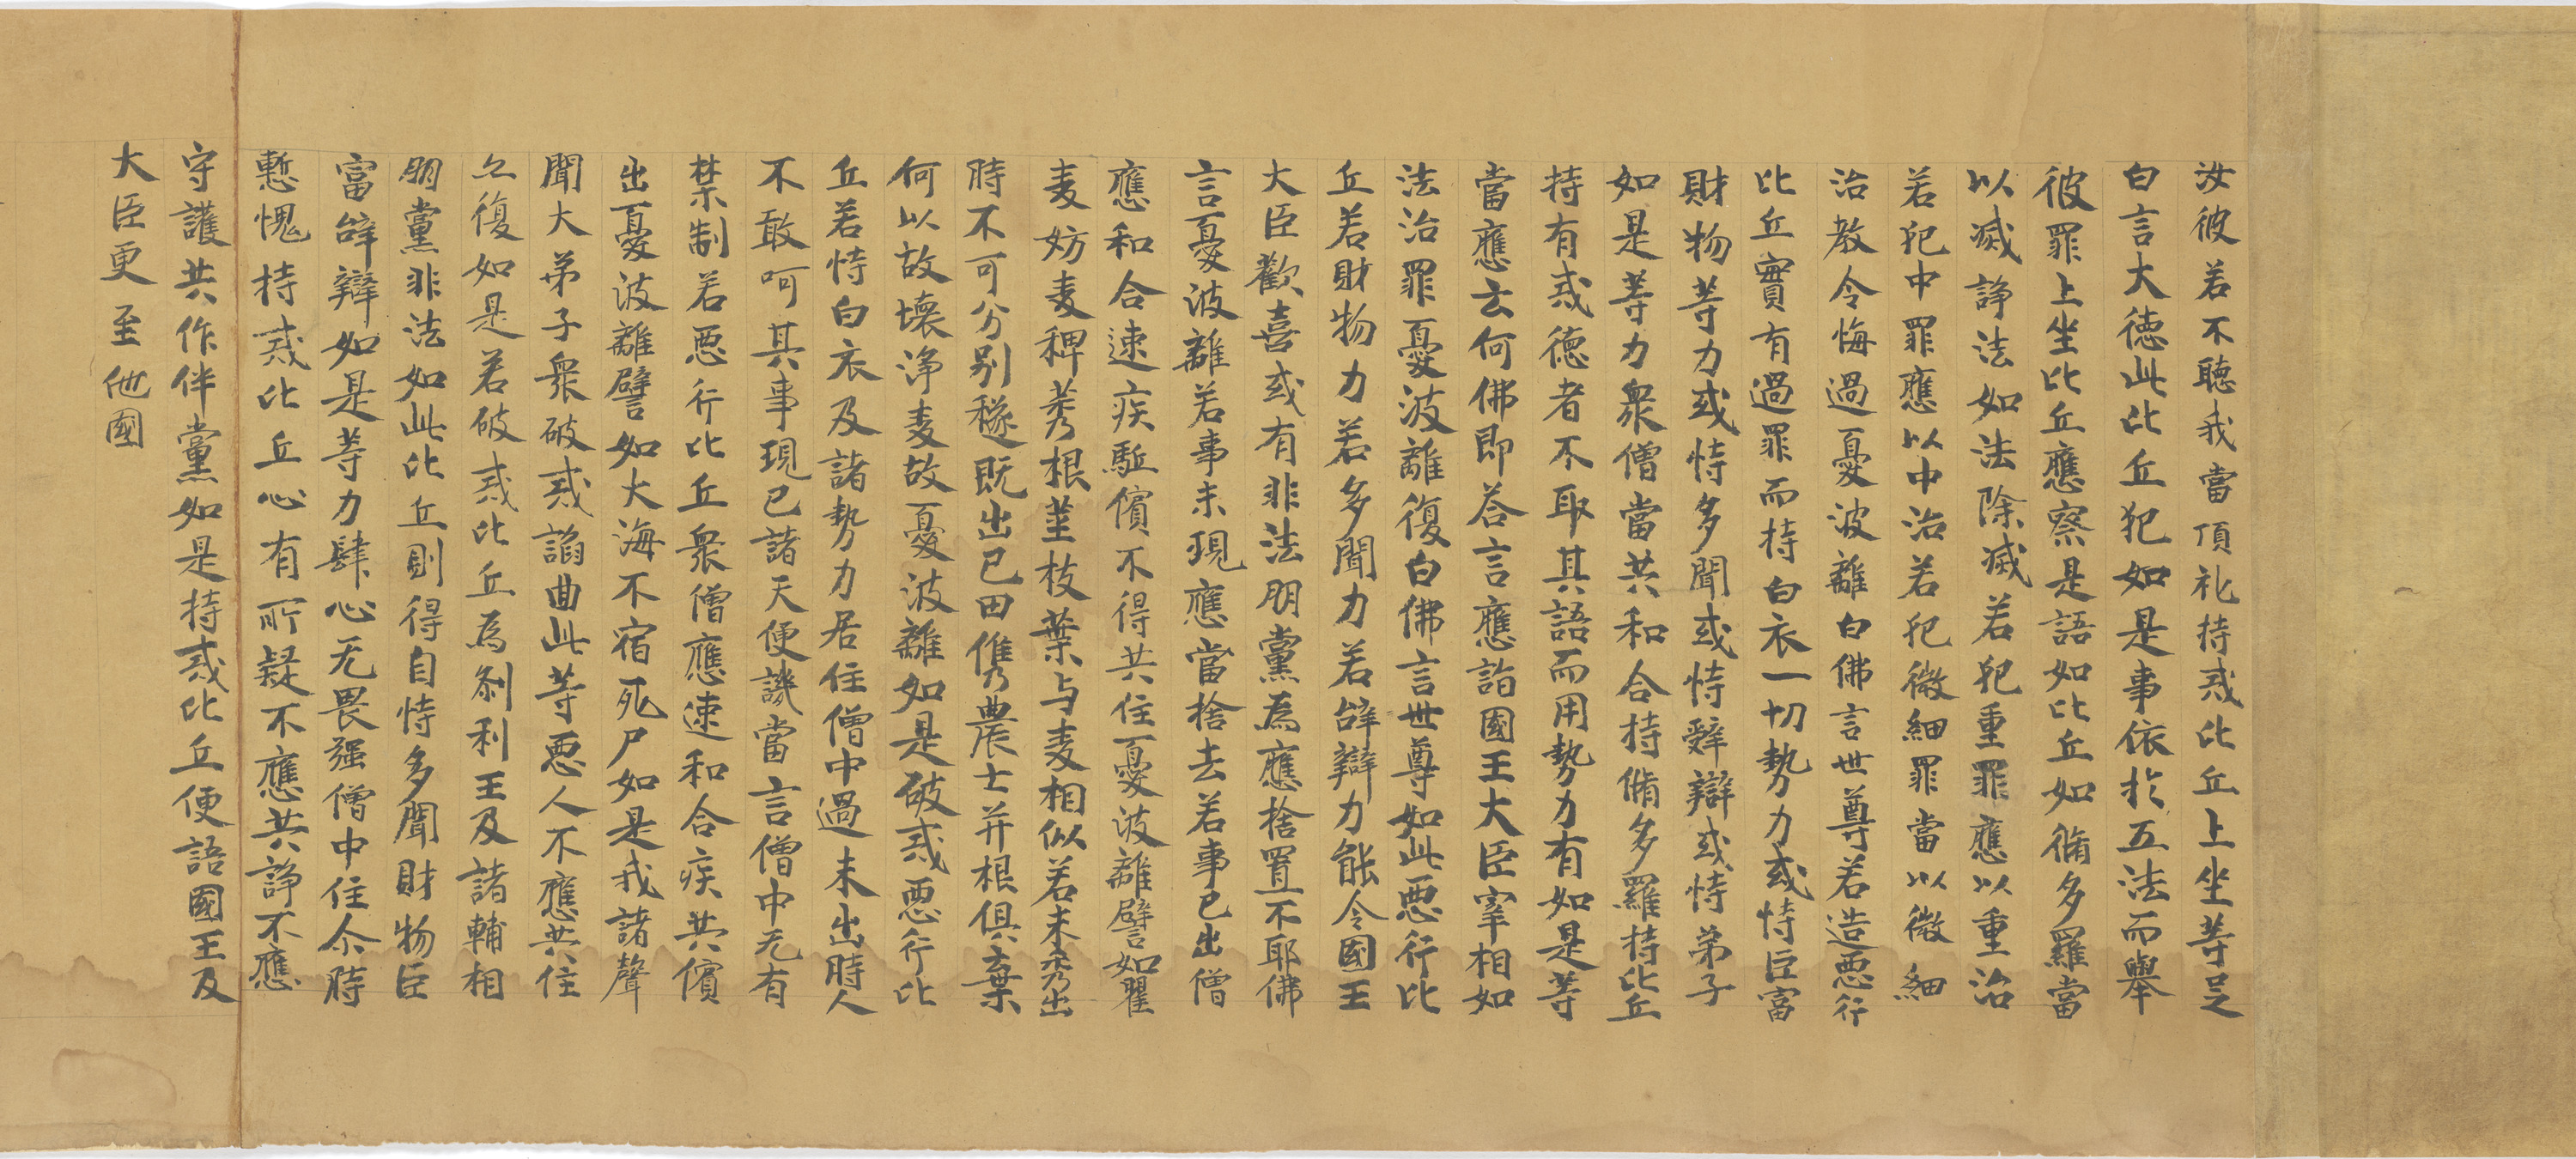 汝彼若不聴我當頂礼持戒比丘上坐等足
白言大徳此比丘犯如是事依於五法而舉
彼罪上坐比丘應察是語如比丘如脩多羅當
以滅諍法如法除滅若犯重罪應以重治
若犯中罪應以中治若犯微細罪當以微細
治教令悔過憂波離白佛言世尊若造惡行
比丘實有過罪而持白衣一切勢力或恃臣富
財物等力或恃多聞或恃辭辯或恃弟子
如是等力衆僧當共和合持脩多羅持比丘
持有戒德者不取其語而用勢力有如是等
當應云何佛即荅言應詣國王大臣宰相如
法治罪憂波離復白佛言世尊如此惡行比
丘若財物力若多聞力若辝辯力能令國王
大臣歡喜或有非法朋黨為應捨置不耶佛
言憂波離若事未現應當捨去若事已出僧
應和合速疾駈儐不得共住憂波離譬如瞿
麦妨麦稗莠根莖枝葉与麦相似若未秀出
時不可分别穟既出已田儁農士并根俱棄
何以故壊浄麦故憂波離如是破戒惡行比
丘若恃白衣及諸勢力居住僧中過未出時人
不敢呵其事現已諸天便譏當言僧中无有
禁制若惡行比丘衆僧應速和合疾共儐
出憂波離譬如大海不宿死尸如是我諸聲
聞大弟子衆破戒諂曲此等惡人不應共住
亦復如是若破戒比丘為刹利王及諸輔相
朋黨非法如此比丘則得自恃多聞財物臣
富辝辯如是等力肆心无畏强僧中住尒時
慙愧持戒比丘心有所疑不應共諍不應
守護共作伴黨如是持戒比丘便語國王及
大臣更至他國